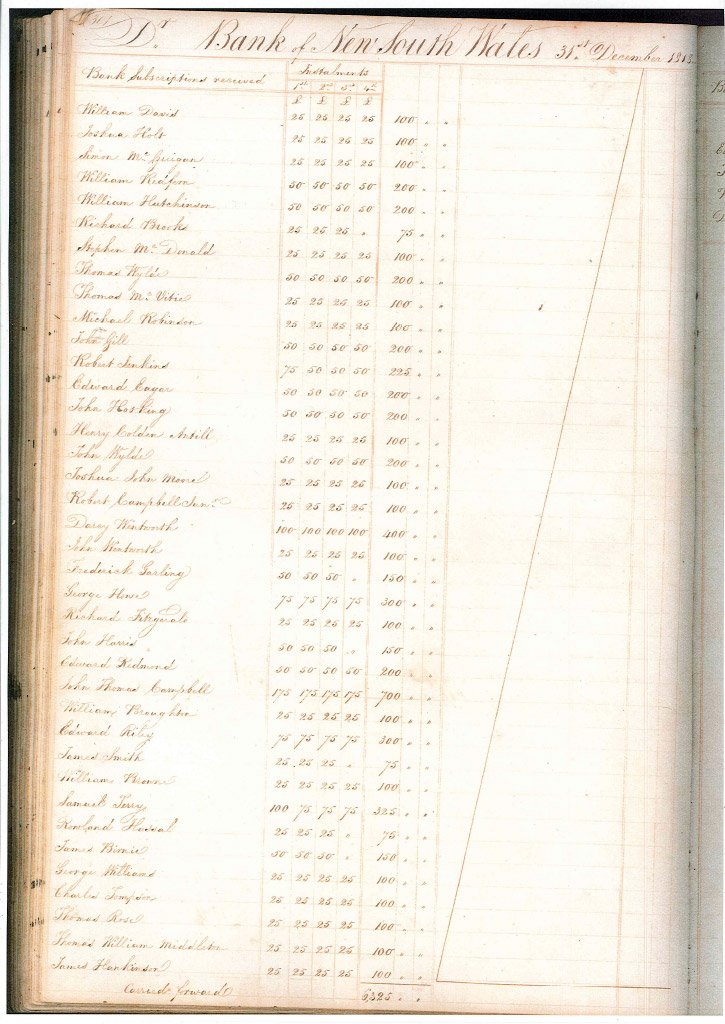 Dr Bank of New South Wales 31st December 1818
Bank Subscriptions received Instalments
1st 2nd 3d 4th
£ £ £ £
William Davis 25 25 25 25 100 " "
Joshua Holt 25 25 25 25 100 " "
Simon Mc Guigan 25 25 25 25 100 " "
William Redfern 50 50 50 50 200 " "
William Hutchinson 50 50 50 50 200 " "
Richard Brooks 25 25 25 " 75 " "
Stephen Mc Donald 25 25 25 25 100 " "
Thomas Wylde 50 50 50 50 200 " "
Thomas Mc Vitie 25 25 25 25 100 " "
Michael Robinson 25 25 25 25 100 " "
John Gill 50 50 50 50 200 " "
Robert Jenkins 75 50 50 50 225 " "
Edward Eagar 50 50 50 50 200 " "
John Hosking 50 50 50 50 200 " "
Henry Colden Antill 25 25 25 25 100 " "
John Wylde 50 50 50 50 200 " "
Joshua John Moore 25 25 25 25 100 " "
Robert Campbell Junr 25 25 25 25 100 " "
Darcy Wentworth 100 100 100 100 400 " "
John Wentworth 25 25 25 25 100 " "
Frederick Garling 50 50 50 " 150 " "
George Howe 75 75 75 75 300 " "
Richard Fitzgerald 25 25 25 25 100 " "
John Harris 50 50 50 " 150 " "
Edward Redmond 50 50 50 50 200 " "
John Thomas Campbell 175 175 175 175 700 " "
William Broughton 25 25 25 25 100 " "
Edward Riley 75 75 75 75 300 " "
James Smith 25 25 25 " 75 " "
William Browne 25 25 25 25 100 " "
Samuel Terry 100 75 75 75 325 " "
Rowland Hassal 25 25 25 " 75 " "
James Birnie 50 50 50 " 150 " "
George Williams 25 25 25 25 100 " "
Charles Tompson 25 25 25 25 100 " "
Thomas Rose 25 25 25 25 100 " "
Thomas William Middleton 25 25 25 25 100 " "
James Hankinson 25 25 25 25 100 " "
Carried forward 6325 " "